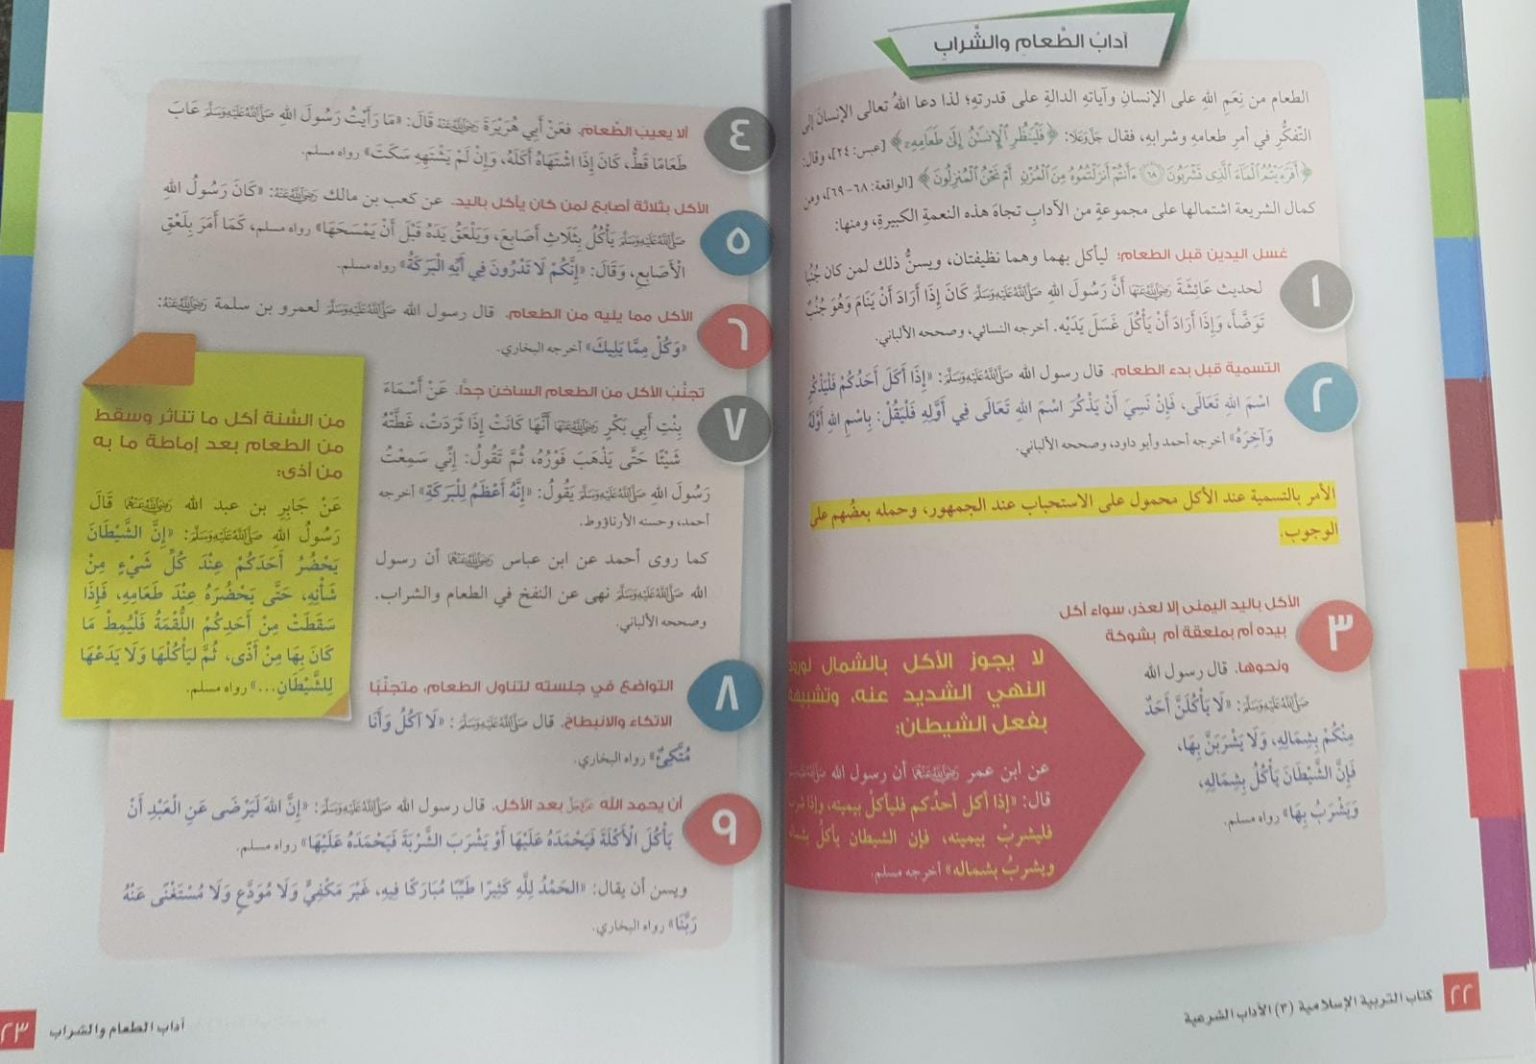 آدابُ الطَّعامِ والشَّرابِ
الطعام من نِعَمِ اللهِ على الإنسانِ وآياتِهِ الدالةِ على قدرتِهِ؛ لذا دعا اللهُ تعالى الإنسانَ إلى
التفكُّرِ في أمرِ طعامِهِ وشرابِهِ، فقال جَلَّوَعَلَا: ﴿فَلْيَنظُرِ الْإِنسَنُ إِلَى طَعَامِهِ﴾ [عبس: ٢٤]، وقال:
﴿أَفَرَءَيْتُمُ الْمَاءَ الَّذِى تَشْرَبُونَ ٦٨ ءَأَنتُمْ أَنزَلْتُمُوهُ مِنَ الْمُزْنِ أَمْ نَحْنُ الْمُنزِلُونَ﴾ [الواقعة: ٦٨-٦٩]، ومن
كمال الشريعة اشتمالها على مجموعةٍ من الآدابِ تجاهَ هذه النعمةِ الكبيرةِ، ومنها:
١
غسل اليدين قبل الطعام؛ ليأكل بهما وهما نظيفتان، ويسنُّ ذلك لمن كان جُنُبًا
لحديث عَائِشَةَ رَضِيَاللَّهُعَنْهَا أَنَّ رَسُولَ اللهِ صَلَّىاللَّهُعَلَيْهِوَسَلَّمَ كَانَ إِذَا أَرَادَ أَنْ يَنَامَ وَهُوَ جُنُبٌ
تَوَضَّأَ، وَإِذَا أَرَادَ أَنْ يَأْكُلَ غَسَلَ يَدَيْهِ. أخرجه النسائي، وصححه الألباني.
٢
التسمية قبل بدء الطعام. قال رسول الله صَلَّىاللَّهُعَلَيْهِوَسَلَّمَ: «إِذَا أَكَلَ أَحَدُكُمْ فَلْيَذْكُرِ
اسْمَ اللهِ تَعَالَى، فَإِنْ نَسِيَ أَنْ يَذْكُرَ اسْمَ اللهِ تَعَالَى فِي أَوَّلِهِ فَلْيَقُلْ: بِاسْمِ اللهِ أَوَّلَهُ
وَآخِرَهُ» أخرجه أحمد وأبو داود، وصححه الألباني.
الأمر بالتسمية عند الأكل محمول على الاستحباب عند الجمهور، وحمله بعضُهم على
الوجوب.
٣
الأكل باليد اليمنى إلا لعذر، سواء أكل
بيده أم بملعقة أم بشوكة
ونحوها. قال رسول الله
صَلَّىاللَّهُعَلَيْهِوَسَلَّمَ: «لَا يَأْكُلَنَّ أَحَدٌ
مِنْكُمْ بِشِمَالِهِ، وَلَا يَشْرَبَنَّ بِهَا،
فَإِنَّ الشَّيْطَانَ يَأْكُلُ بِشِمَالِهِ،
وَيَشْرَبُ بِهَا» رواه مسلم.
لا يجوز الأكل بالشمال لورود
النهي الشديد عنه، وتشبيهه
بفعل الشيطان:
عن ابن عمر رَضِيَاللَّهُعَنْهُمَا أن رسول الله
قال: «إذا أكل أحدُكم فليأكلْ بيمينه، وإذا شرب
فليشربْ بيمينه، فإن الشيطان يأكلُ بشماله
ويشربُ بشماله» أخرجه مسلم.
٢٢
كتاب التربية الإسلامية (٣) الآداب الشرعية
٤
ألا يعيب الطَّعامَ. فعَنْ أَبِي هُرَيْرَةَ رَضِيَاللَّهُعَنْهُ قَالَ: «مَا رَأَيْتُ رَسُولَ اللهِ صَلَّىاللَّهُعَلَيْهِوَسَلَّمَ عَابَ
طَعَامًا قَطُّ، كَانَ إِذَا اشْتَهَاهُ أَكَلَهُ، وَإِنْ لَمْ يَشْتَهِهِ سَكَتَ» رواه مسلم.
٥
الأكل بثلاثة أصابع لمن كان يأكل باليد. عن كعب بن مالك رَضِيَاللَّهُعَنْهُ: «كَانَ رَسُولُ اللهِ
صَلَّىاللَّهُعَلَيْهِوَسَلَّمَ يَأْكُلُ بِثَلَاثِ أَصَابِعَ، وَيَلْعَقُ يَدَهُ قَبْلَ أَنْ يَمْسَحَهَا» رواه مسلم، كَمَا أَمَرَ بِلَعْقِ
الْأَصَابِعِ، وَقَالَ: «إِنَّكُمْ لَا تَدْرُونَ فِي أَيِّهِ الْبَرَكَةُ» رواه مسلم.
٦
الأكل مما يليه من الطعام. قال رسول الله صَلَّىاللَّهُعَلَيْهِوَسَلَّمَ لعمرو بن سلمة رَضِيَاللَّهُعَنْهُ:
«وَكُلْ مِمَّا يَلِيكَ» أخرجه البخاري.
٧
تجنُّب الأكل من الطعام الساخن جدًّا. عَنْ أَسْمَاءَ
بِنْتِ أَبِي بَكْرٍ رَضِيَاللَّهُعَنْهَا أَنَّهَا كَانَتْ إِذَا ثَرَدَتْ، غَطَّتْهُ
شَيْئًا حَتَّى يَذْهَبَ فَوْرُهُ، ثُمَّ تَقُولُ: إِنِّي سَمِعْتُ
رَسُولَ اللهِ صَلَّىاللَّهُعَلَيْهِوَسَلَّمَ يَقُولُ: «إِنَّهُ أَعْظَمُ لِلْبَرَكَةِ» أخرجه
أحمد، وحسنه الأرناؤوط.
كما روى أحمد عن ابن عباس رَضِيَاللَّهُعَنْهُمَا أن رسول
الله صَلَّىاللَّهُعَلَيْهِوَسَلَّمَ نهى عن النفخ في الطعام والشراب.
وصححه الألباني.
من السُّنة أكل ما تناثر وسقط
من الطعام بعد إماطة ما به
من أذى:
عَنْ جَابِرِ بن عبد الله رَضِيَاللَّهُعَنْهُمَا قَالَ
رَسُولُ اللهِ صَلَّىاللَّهُعَلَيْهِوَسَلَّمَ: «إِنَّ الشَّيْطَانَ
يَحْضُرُ أَحَدَكُمْ عِنْدَ كُلِّ شَيْءٍ مِنْ
شَأْنِهِ، حَتَّى يَحْضُرَهُ عِنْدَ طَعَامِهِ، فَإِذَا
سَقَطَتْ مِنْ أَحَدِكُمْ اللُّقْمَةُ فَلْيُمِطْ مَا
كَانَ بِهَا مِنْ أَذًى، ثُمَّ لِيَأْكُلْهَا وَلَا يَدَعْهَا
لِلشَّيْطَانِ...» رواه مسلم.
٨
التواضع في جلسته لتناول الطعام، متجنّبًا
الاتكاء والانبطاح. قال صَلَّىاللَّهُعَلَيْهِوَسَلَّمَ: «لَا آكُلُ وَأَنَا
مُتَّكِئٌ» رواه البخاري.
٩
أن يحمد الله عَزَّوَجَلَّ بعد الأكل. قال رسول الله صَلَّىاللَّهُعَلَيْهِوَسَلَّمَ: «إِنَّ اللهَ لَيَرْضَى عَنِ الْعَبْدِ أَنْ
يَأْكُلَ الْأَكْلَةَ فَيَحْمَدَهُ عَلَيْهَا أَوْ يَشْرَبَ الشَّرْبَةَ فَيَحْمَدَهُ عَلَيْهَا» رواه مسلم.
ويسن أن يقال: «الحَمْدُ لِلَّهِ كَثِيرًا طَيِّبًا مُبَارَكًا فِيهِ، غَيْرَ مَكْفِيٍّ وَلَا مُوَدَّعٍ وَلَا مُسْتَغْنًى عَنْهُ
رَبَّنَا» رواه البخاري.
آداب الطعام والشراب
٢٣